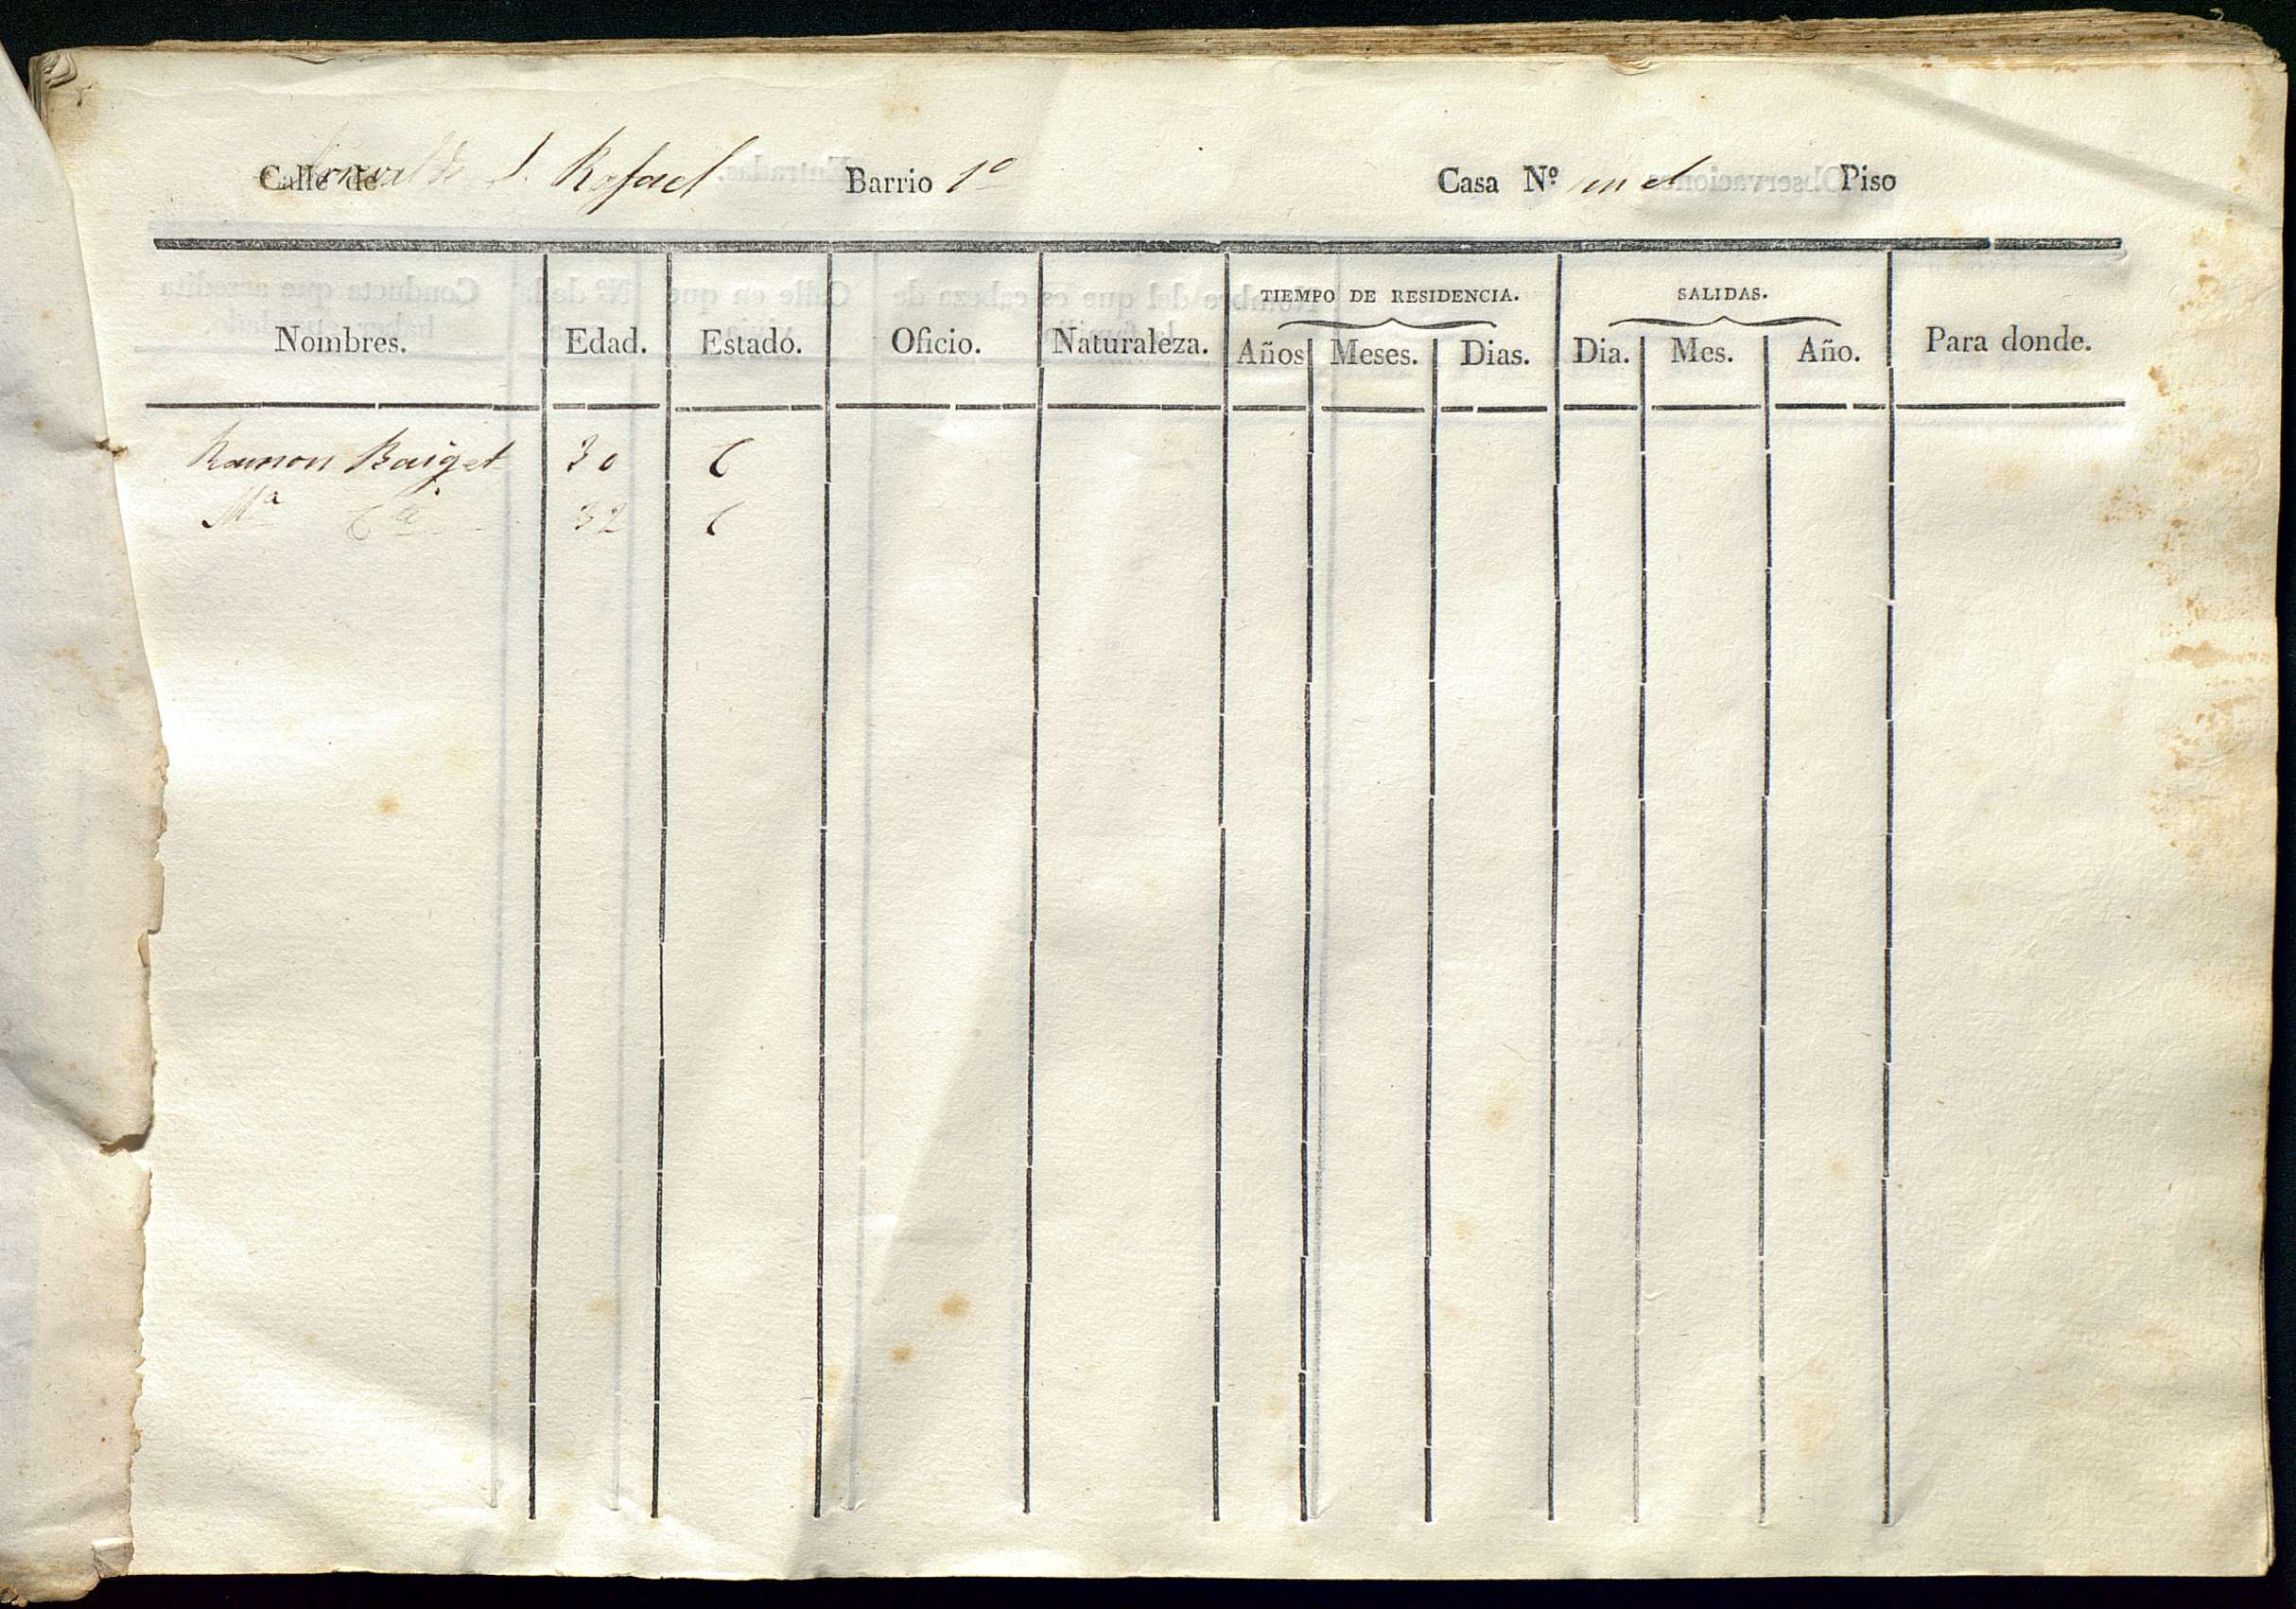 Calle de S. Rafael Barrio 1º Casa Nº en el Piso
TIEMPO DE RESIDENCIA. SALIDAS.
Nombres. Edad. Estado. Oficio. Naturaleza. Años Meses. Dias. Dia. Mes. Año. Para donde.
Ramon Baiget 30 C
Mª 32 C